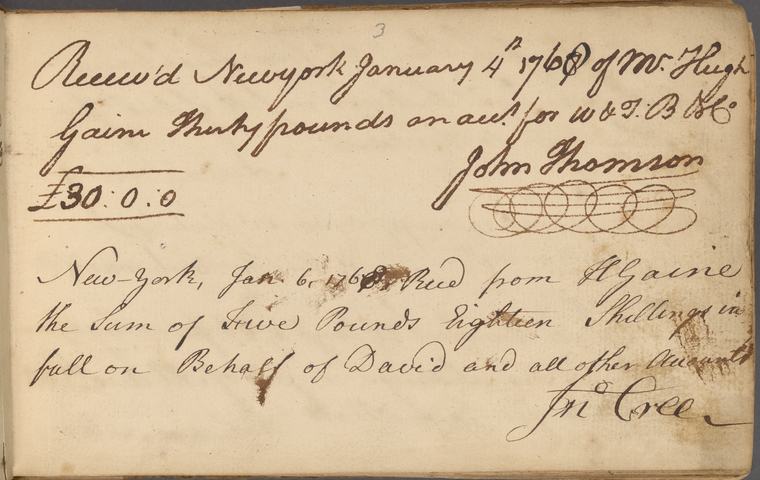 3
Receiv'd Newyork January 4th 1768 of Mr. Hugh
Gaine Thirty pounds on acct. for W & T. B & Co
John Thomson
£30:0:0
New-York, Jan 6, 1768, Recd from H Gaine
the Sum of Pounds Eighteen Shillings in
full on Behalf of David and all other Accounts
Jno Cree